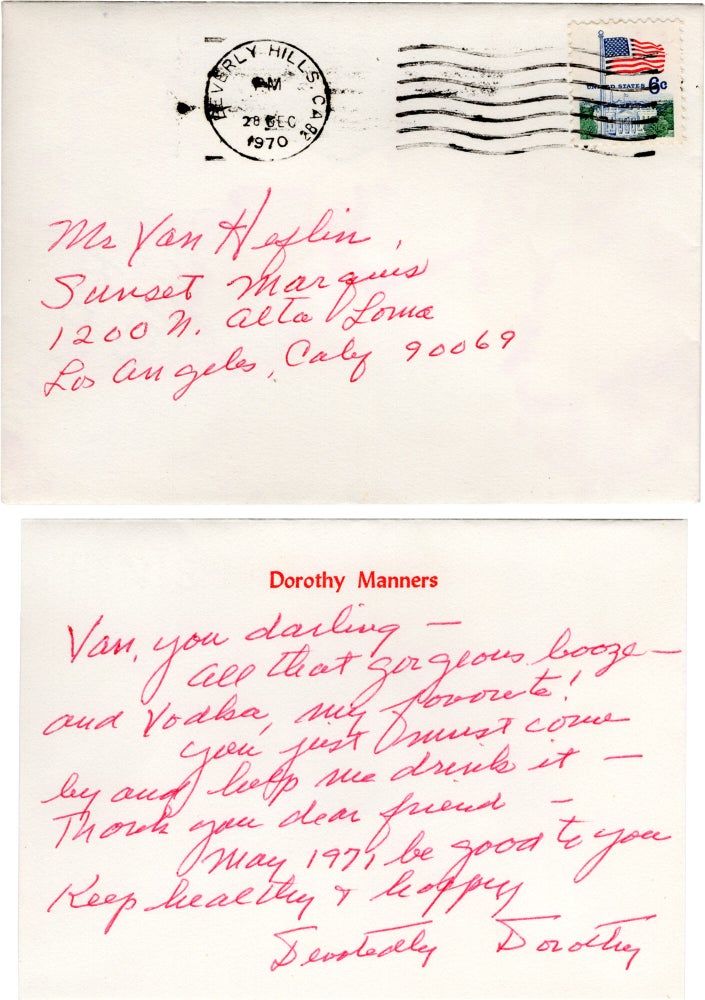 BEVERLY HILLS, CA 902
PM
28 DEC
1970
UNITED STATES 6c
Mr Van Heflin,
Sunset Marquis
1200 N. Alta Loma
Los Angeles, Calif 90069
Dorothy Manners
Van, you darling —
all that gorgeous booze —
and Vodka, my favorite!
You just must come
by and help me drink it —
Thank you dear friend —
May 1971 be good to you
Keep healthy & happy
Devotedly Dorothy